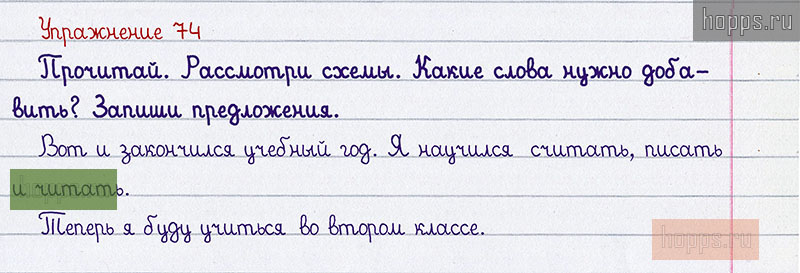 hopps.ru
Упражнение 74
Прочитай. Рассмотри схемы. Какие слова нужно доба-
вить? Запиши предложения.
Вот и закончился учебный год. Я научился считать, писать
и читать.
Теперь я буду учиться во втором классе.
hopps.ru